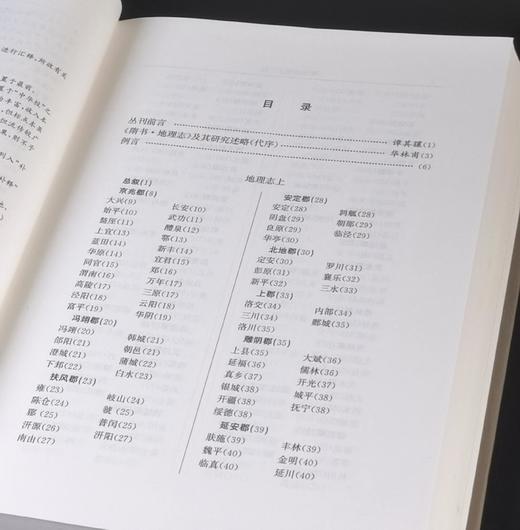 进行汇释,所收有关
置于最前。
置于“中华校”之
丰富,收入本
但标点本虽
但流传较广
果,则不予
列入“补
补释”
目 录
丛刊前言 谭其骧(1)
《隋书·地理志》及其研究述略(代序) 华林甫(3)
例言 (6)
地理志上
总叙(1)
京兆郡(8)
大兴(9) 长安(10)
始平(10) 武功(11)
盩厔(11) 醴泉(12)
上宜(13) 鄠(13)
蓝田(14) 新丰(14)
华原(14) 宜君(15)
同官(15) 郑(16)
渭南(16) 万年(17)
高陵(17) 三原(17)
泾阳(18) 云阳(18)
富平(19) 华阴(19)
冯翊郡(20)
冯翊(20) 韩城(21)
郃阳(21) 朝邑(21)
澄城(21) 蒲城(22)
下邽(22) 白水(23)
扶风郡(23)
雍(23) 岐山(24)
陈仓(24) 虢(25)
郿(25) 普闰(25)
汧源(26) 汧阳(27)
南由(27)
安定郡(28)
安定(28) 鹑觚(28)
阴盘(29) 朝那(29)
良原(29) 临泾(29)
华亭(30)
北地郡(30)
定安(30) 罗川(31)
彭原(31) 襄乐(32)
新平(32) 三水(33)
上郡(33)
洛交(34) 内部(34)
三川(34) 鄜城(35)
洛川(35)
雕阴郡(35)
上县(35) 大斌(36)
延福(36) 儒林(36)
真乡(37) 开光(37)
银城(38) 城平(38)
开疆(38) 抚宁(38)
绥德(38)
延安郡(39)
肤施(39) 丰林(39)
魏平(40) 金明(40)
临真(40) 延川(40)